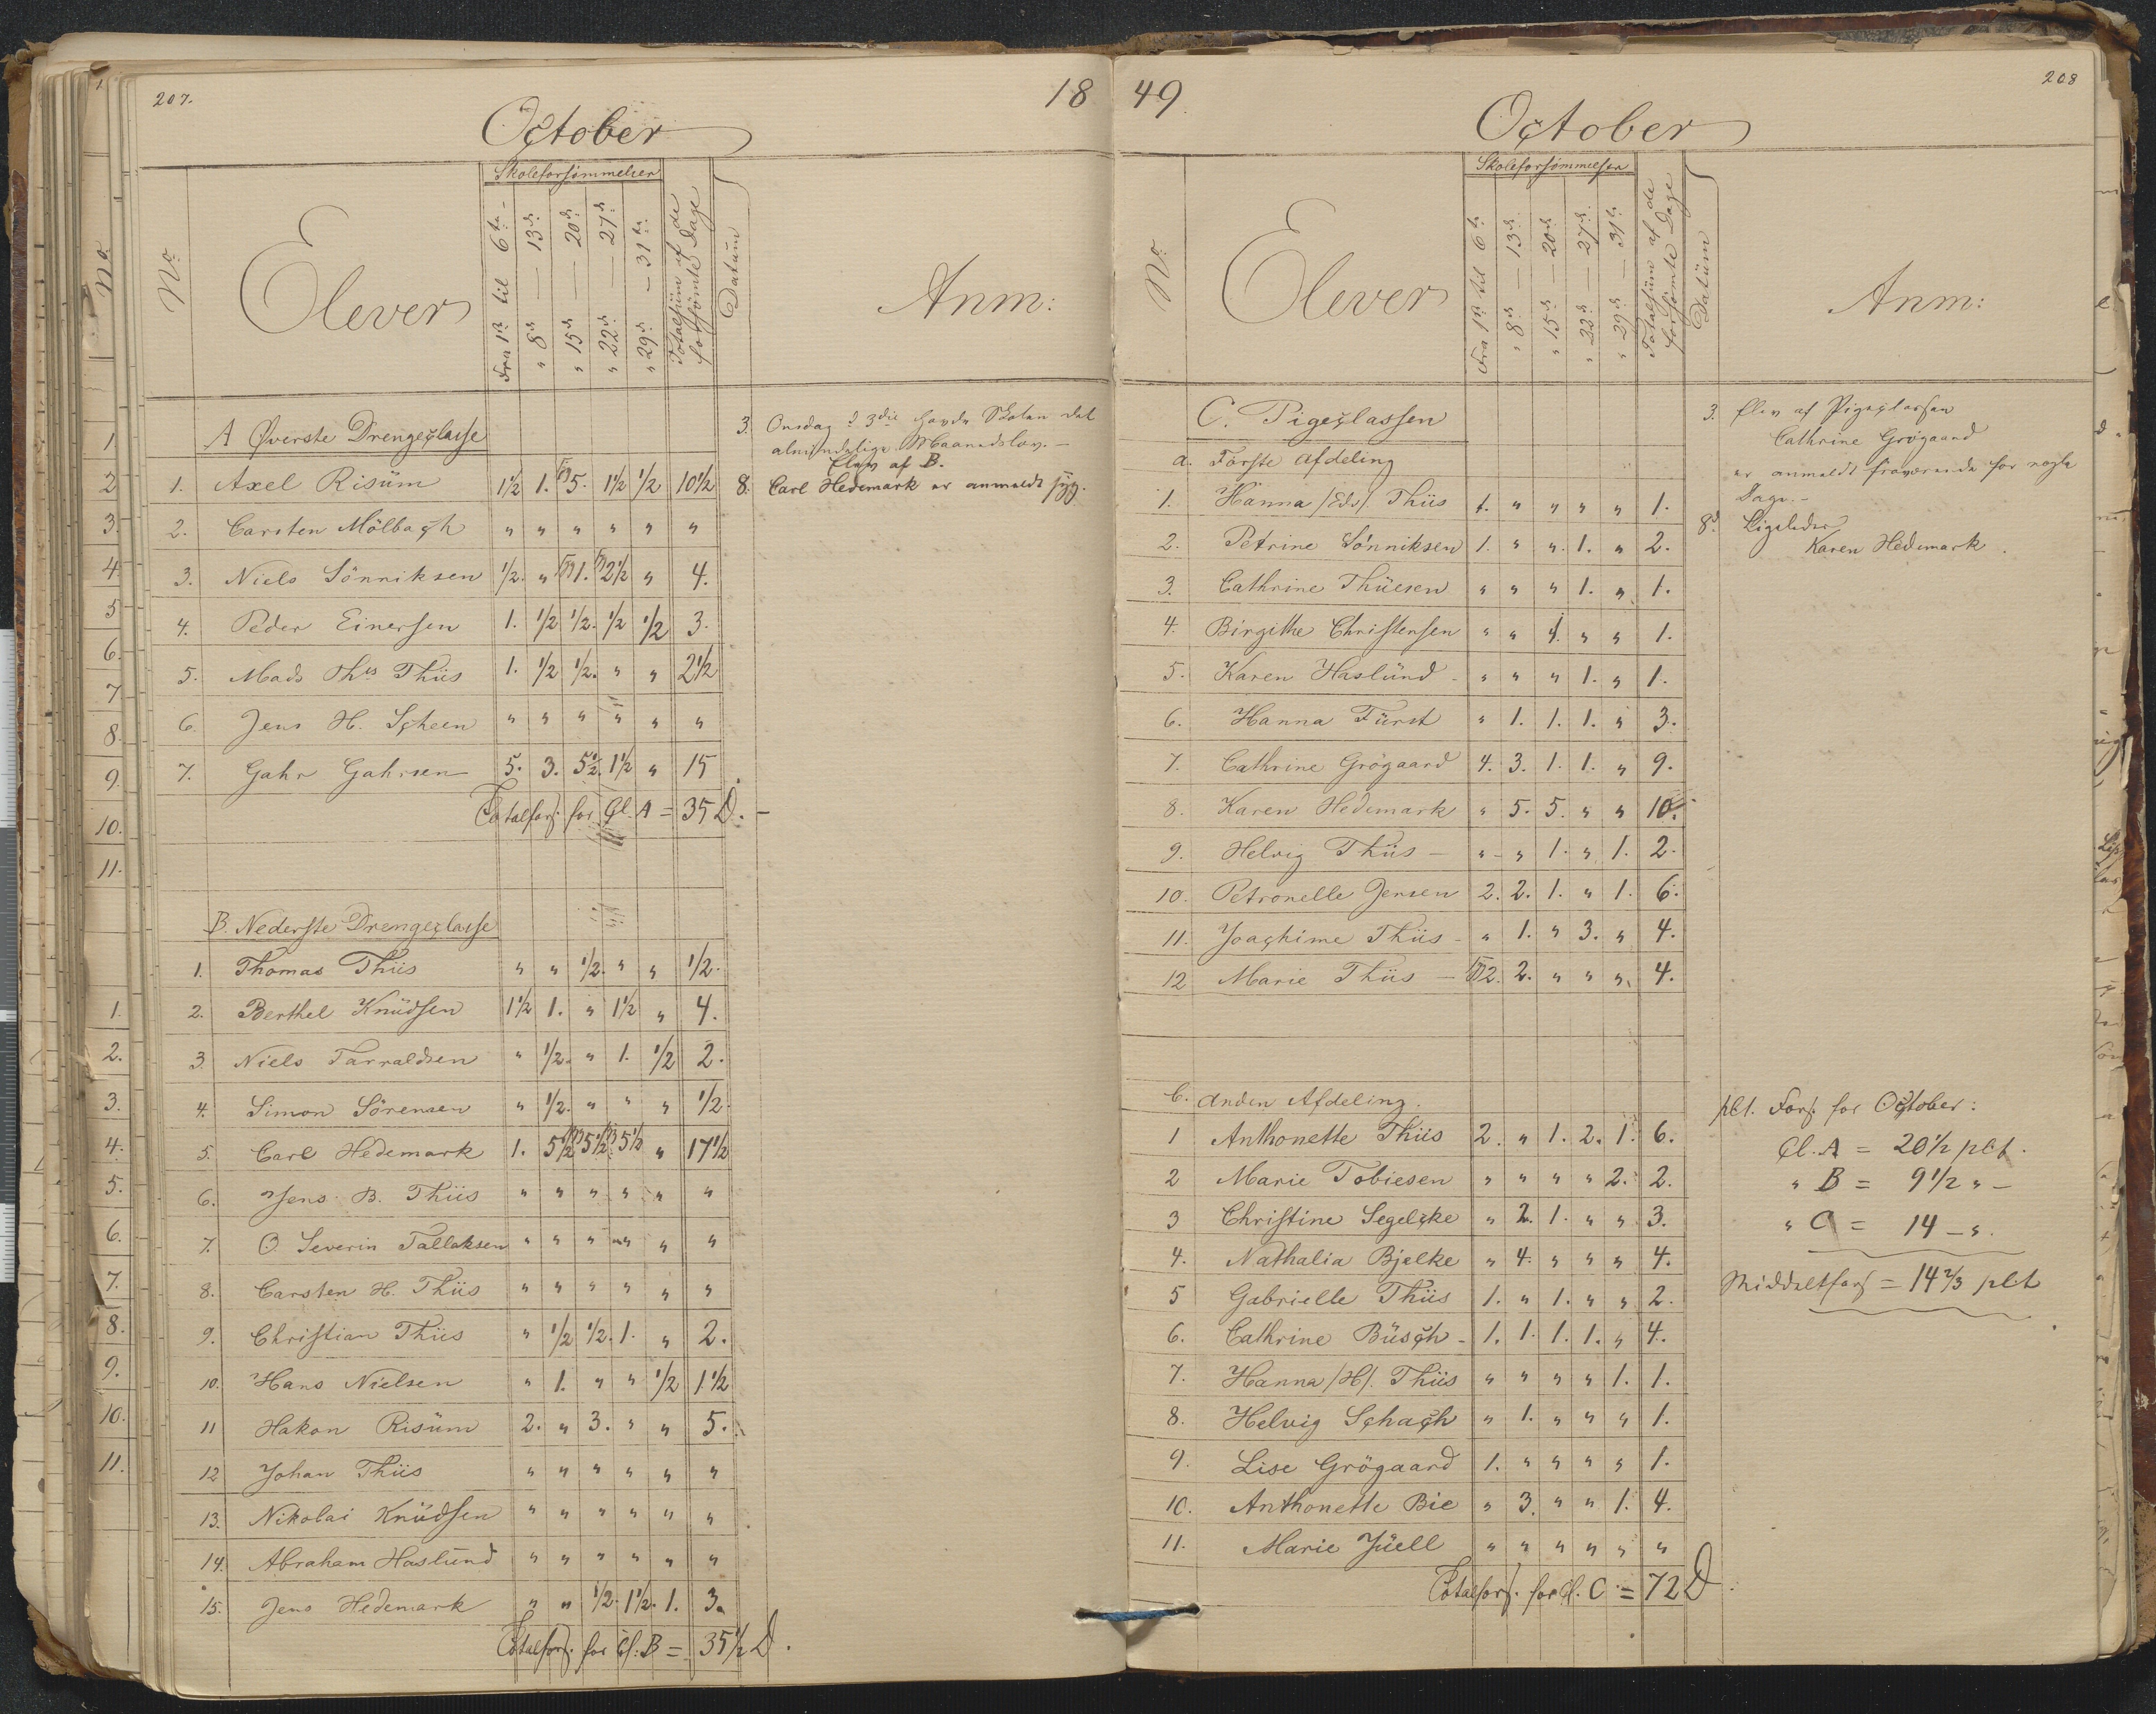 207.
18
October
No
Elever
Skoleforsømmelser
Fra 1ste til 6te
" 8de — 13de
" 15de — 20de
" 22de — 27de
" 29de — 31te
Totalsüm af de forsømte Dage
Datüm
Anm:
A Øverste Drengeclasse
1. Axel Risüm 1½ 1. 5. 1½ ½ 10½
2. Carsten Mölbach " " " " " "
3. Niels Sönniksen ½. " 1. 2½ " 4.
4. Peder Einersen 1. ½ ½. ½ ½ 3.
5. Mads Ths Thiis 1. ½ ½. " " 2½
6. Jens H. Scheen " " " " " "
7. Gahr Gahrsen 5. 3. 5½. 1½ " 15
Totalfors. for Cl. A = 35 D. -
B. Nederste Drengeclasse
1. Thomas Thiis " " ½. " " ½.
2. Berthel Knüdsen 1½ 1. " 1½ " 4.
3. Niels Tarraldsen " ½. " 1. ½ 2.
4. Simon Sörensen " ½. " " " ½.
5. Carl Hedemark 1. 5½ 5½ 5½ " 17½
6. Jens B. Thiis " " " " " "
7. O. Severin Tallaksen " " " " " "
8. Carsten H. Thiis " " " " " "
9. Christian Thiis " ½ ½. 1. " 2.
10. Hans Nielsen " 1. " " ½ 1½
11 Hakon Risüm 2. " 3. " " 5.
12 Johan Thiis " " " " " "
13. Nikolai Knüdsen " " " " " "
14. Abraham Haslünd " " " " " "
15. Jens Hedemark " " ½. 1½. 1. 3.
Totalfors. for Cl. B = 35½ D.
3. Onsdag d 3die havde Skolen det
almindelige Maanedslov. —
Elev af B.
8. Carl Hedemark er anmeldt syg.
49
208
October
No
Elever
Skoleforsømmelser
Fra 1ste til 6te
" 8de — 13de
" 15de — 20de
" 22de — 27de
" 29de — 31te
Totalsüm af de forsømte Dage
Datüm
Anm:
C. Pigeclassen
a. Förste Afdeling
1. Hanna /Eds/. Thiis 1. " " " " 1.
2. Petrine Sönniksen 1. " " 1. " 2.
3. Cathrine Thüesen " " " 1. " 1.
4. Birgithe Christensen " " 1. " " 1.
5. Karen Haslünd - " " " 1. " 1.
6. Hanna Fürst " 1. 1. 1. " 3.
7. Cathrine Grögaard 4. 3. 1. 1. " 9.
8. Karen Hedemark " 5. 5. " " 10.
9. Helvig Thiis — " " 1. " 1. 2.
10. Petronelle Jensen 2. 2. 1. " 1. 6.
11. Joachime Thiis - " 1. " 3. " 4.
12 Marie Thiis — 2. 2. " " " 4.
b. Anden Afdeling.
1 Anthonette Thiis 2. " 1. 2. 1. 6.
2 Marie Tobiesen " " " " 2. 2.
3 Christine Segelcke " 2. 1. " " 3.
4. Nathalia Bjelke " 4. " " " 4.
5 Gabrielle Thiis 1. " 1. " " 2.
6. Cathrine Büsch - 1. 1. 1. 1. " 4.
7. Hanna /H/. Thiis " " " " 1. 1.
8. Helvig Schach " 1. " " " 1.
9. Lise Grögaard 1. " " " " 1.
10. Anthonette Bie " 3. " " 1. 4.
11. Marie Jüell " " " " " "
Totalfors. for Cl. C = 72 D.
3. Elev af Pigeclassen
Cathrine Grögaard
er anmeldt fraværende for nogle
Dage. -
8d. Ligeledes
Karen Hedemark.
pCt. Fors. for October:
Cl. A = 20½ pCt.
" B = 9½ " —
" C = 14 — ".
Middeltfors = 14⅔ pCt